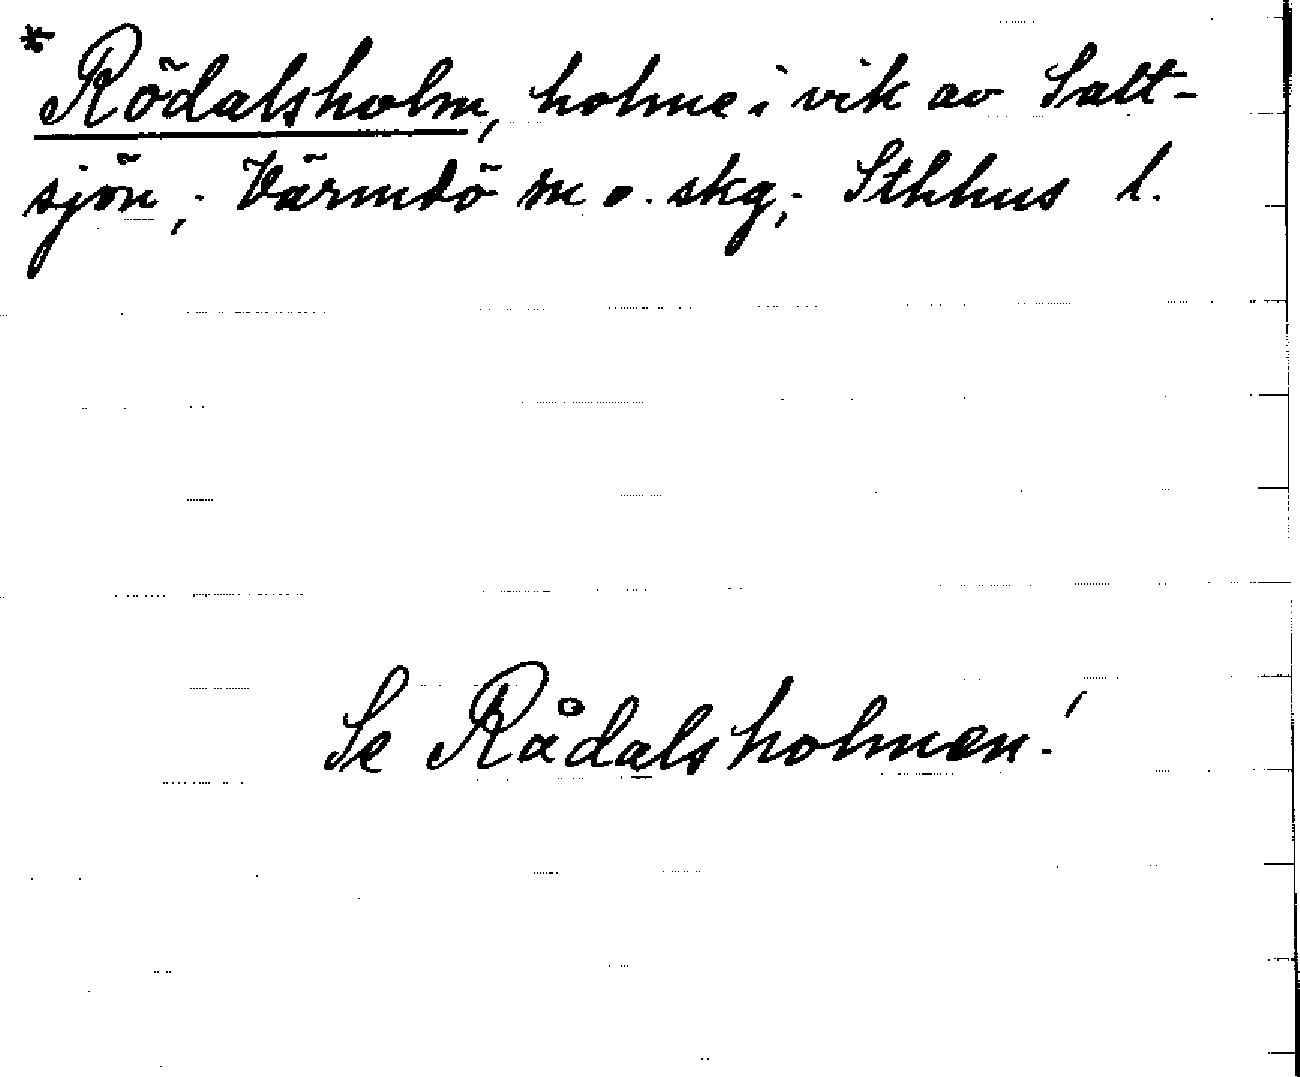 * Rödalsholm, holme i vik av Salt-
sjön,- Värmdö sn o. skg,- Sthlms l.
Se Rådalsholmen!